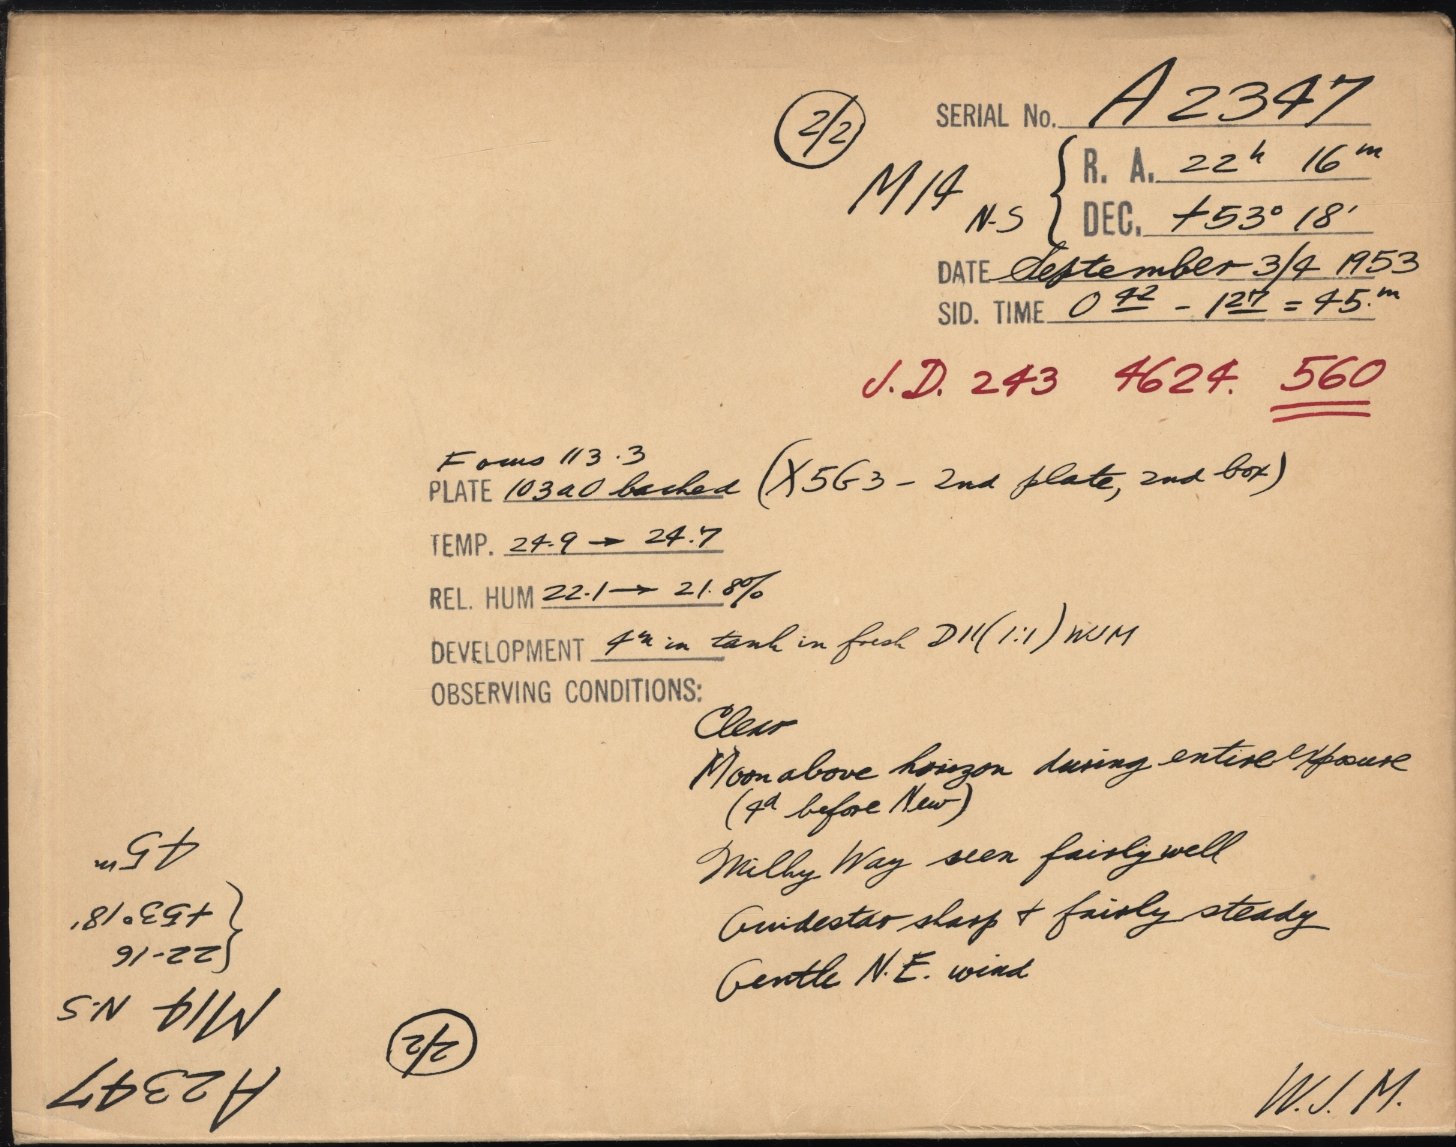 2/2
SERIAL No. A 2347
M14 N-S { R. A. 22h 16m
DEC. +53° 18'
DATE September 3/4 1953
SID. TIME 0 42 - 1 27 = 45.m
J.D. 243 4624. 560
Focus 113.3
PLATE 103aO backed (X5G3 - 2nd plate, 2nd box)
TEMP. 24.9 → 24.7
REL. HUM 22.1 → 21.8%
DEVELOPMENT 4m in tank in fresh D11 (1:1) WJM
OBSERVING CONDITIONS:
Clear
Moon above horizon during entire exposure
(4d before New)
Milky Way seen fairly well
Guidestar sharp + fairly steady
Gentle N.E. wind
W.J. M.
A2347
2/2
M14 N-S
22-16
+53° 18'
45m